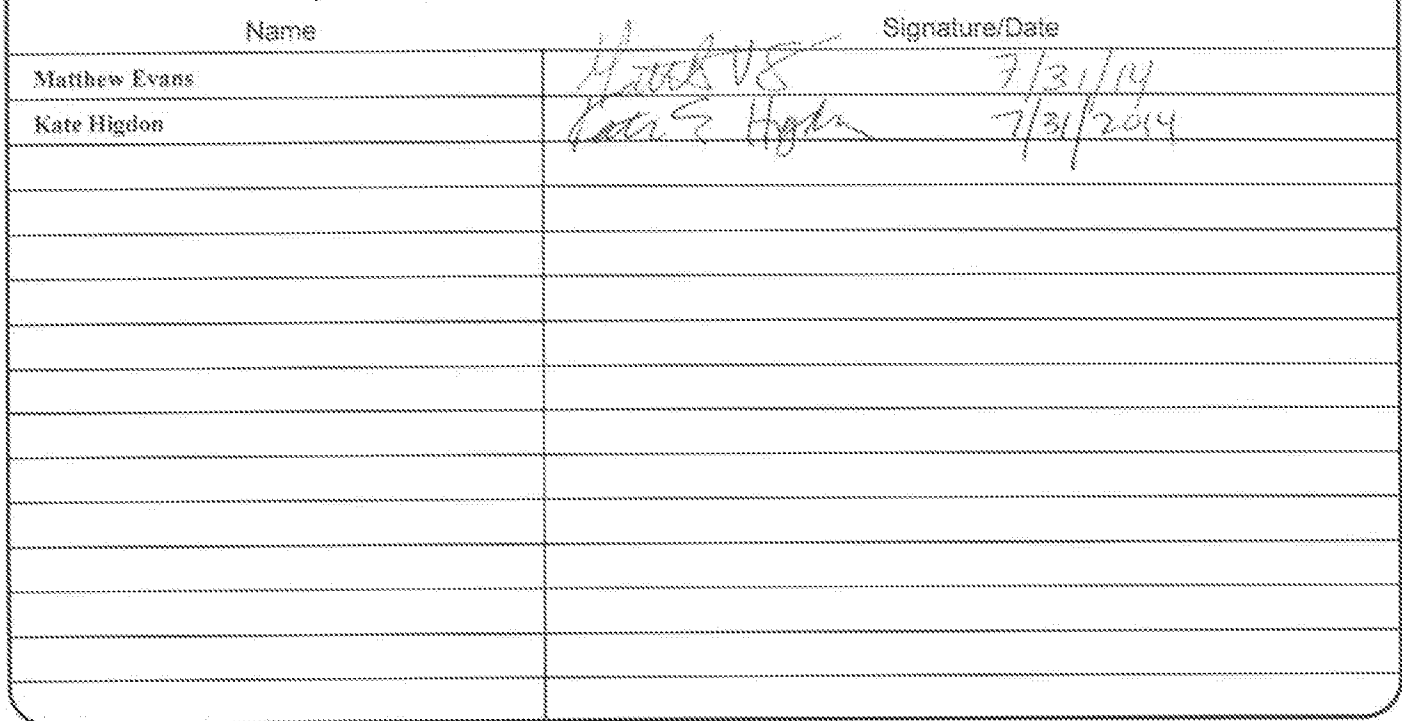 Name Signature/Date
Matthew Evans 7/31/14
Kate Higdon Kate E Higdon 7/31/2014